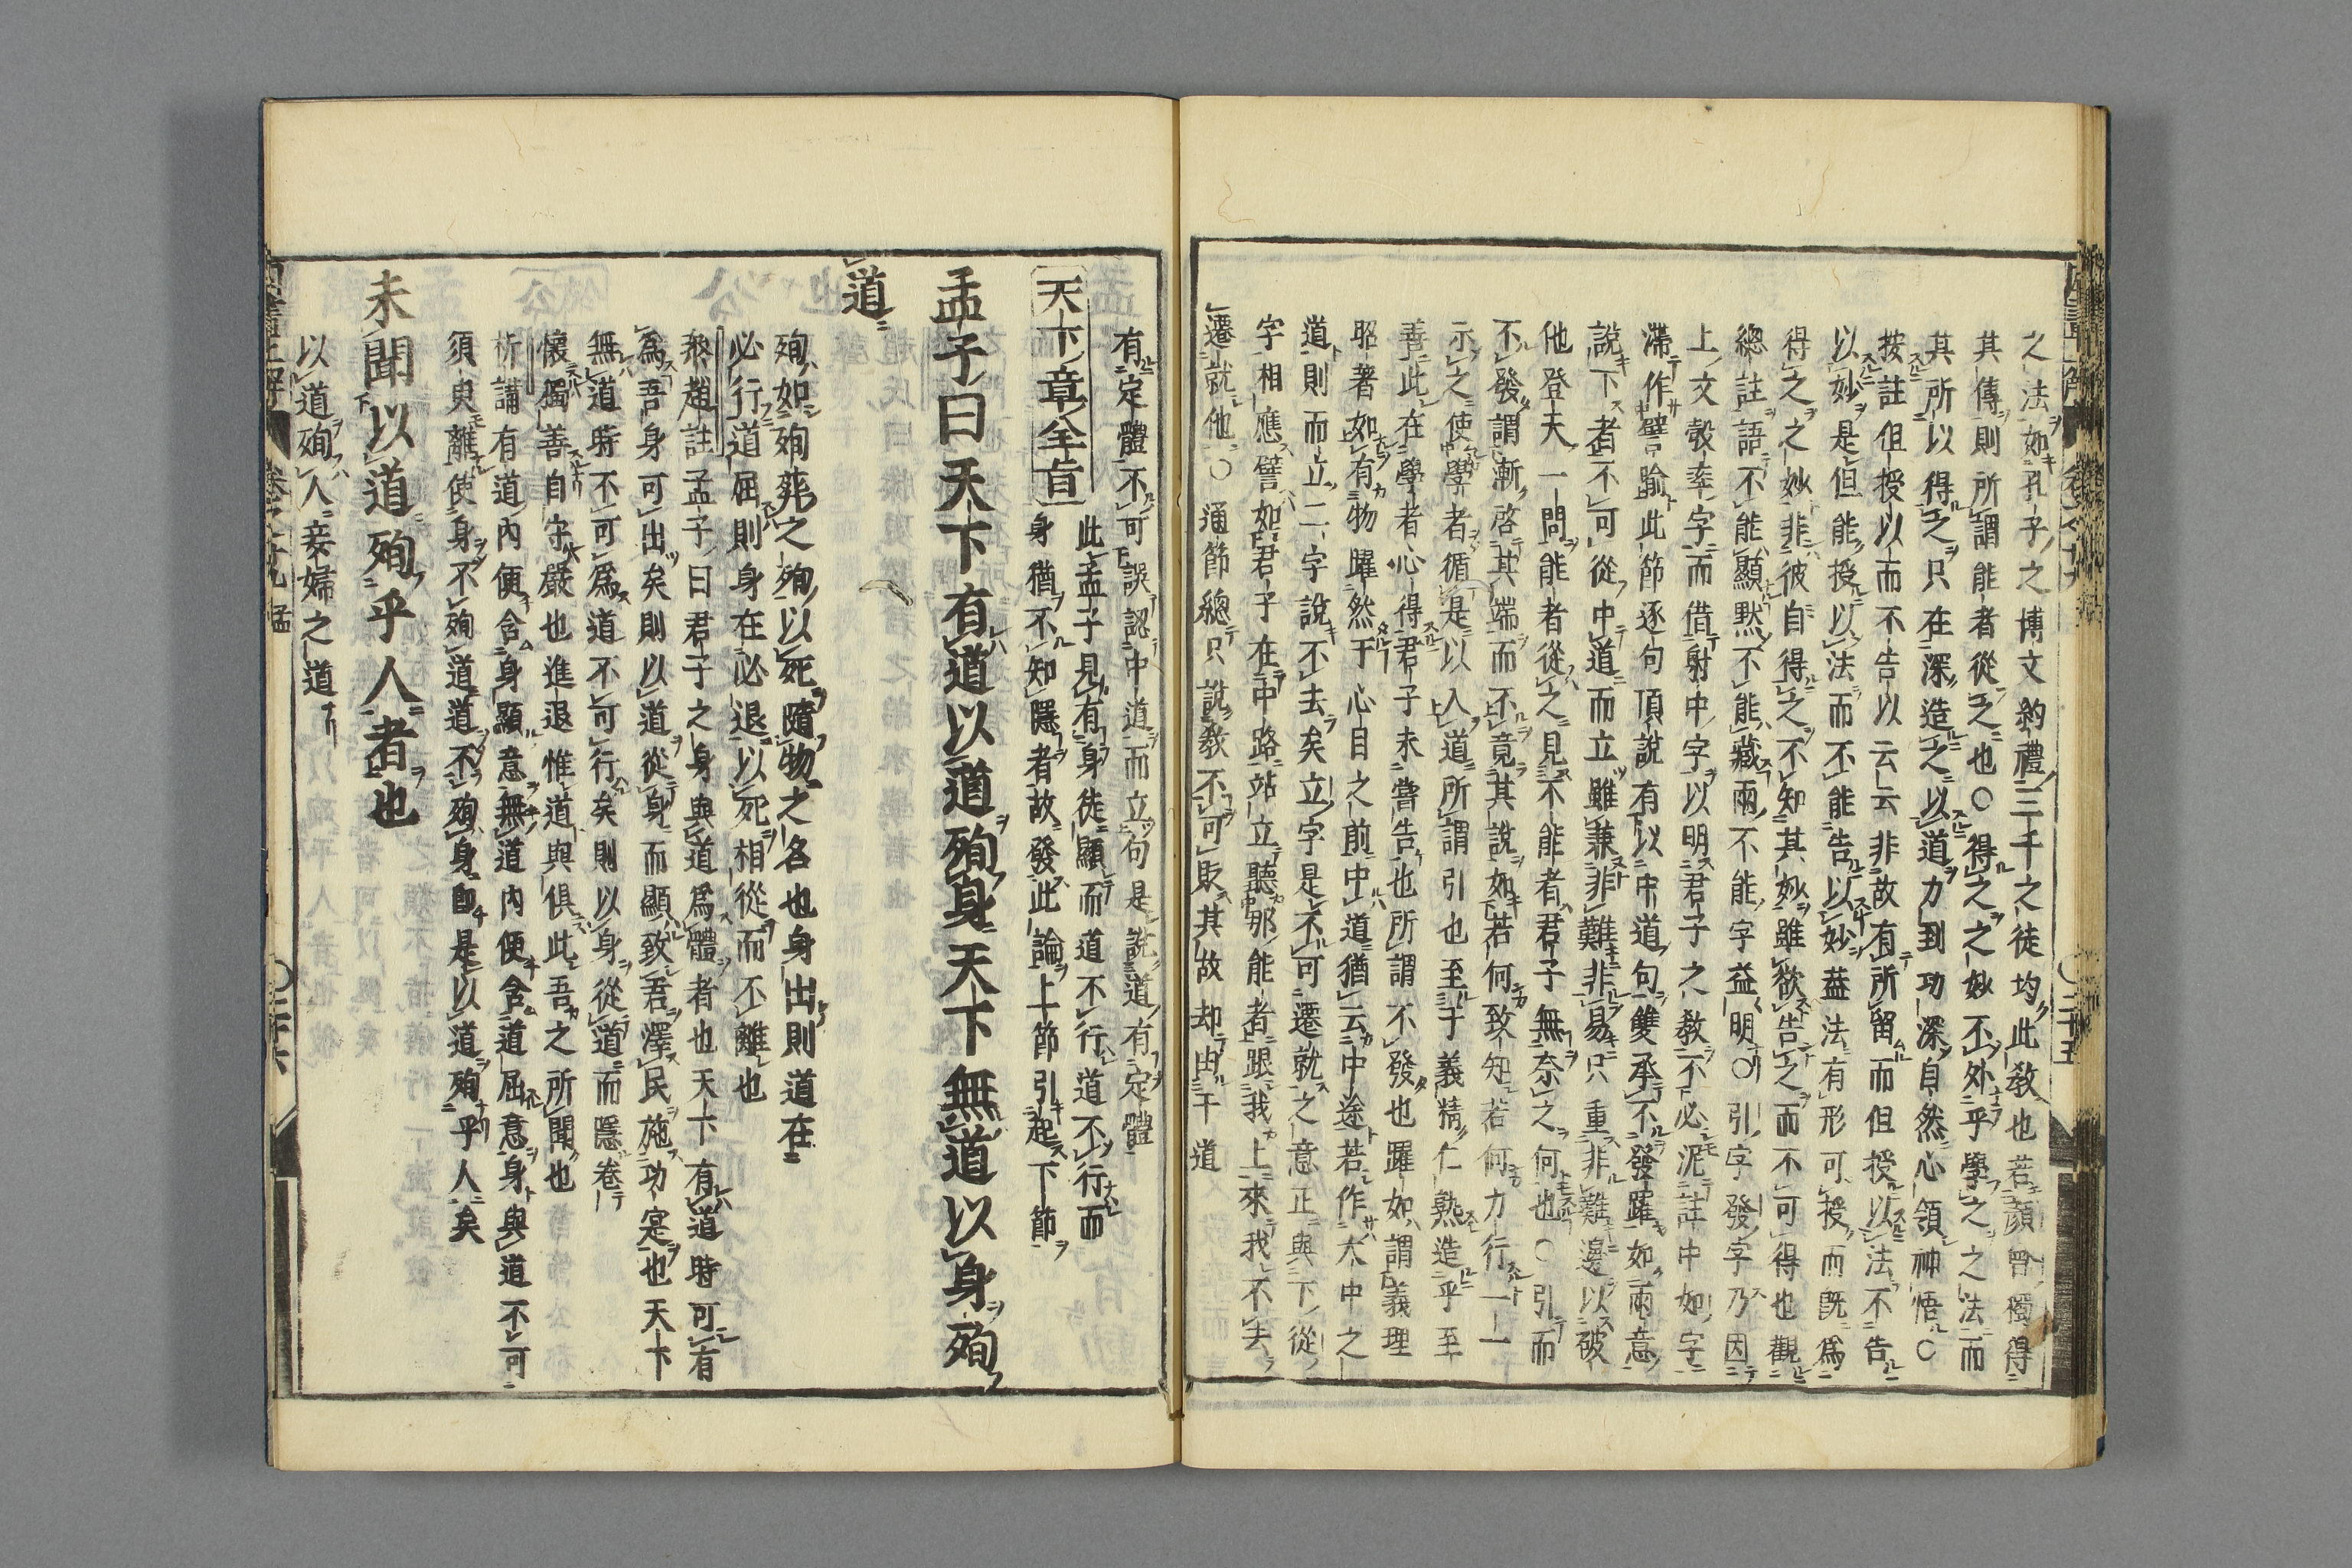 之法如孔子之博文約禮三千之徒均此教也若顏曾獨得
其傳則所謂能者從之也○得之之妙不外乎學之之法而
其所以得之只在深造之以道力到功深自然心領神悟○
按註但授以而不告以云云非故有所留而但授以法不告
以妙是但能授以法而不能告以妙蓋法有形可授而既爲
得之之妙非彼自得之不知其妙雖欲告之而不可得也觀
總註語不能顯默不能藏兩不能字益明○引字發字乃因
上文彀率字而借射中字以明君子之教不必泥註中如字
滯作譬喻此節逐句頂說有以中道句雙承不發躍如兩意
說下者不可從中道而立雖兼非難非易只重非難邊以破
他登天一問能者從之見不能者君子無奈之何也○引而
不發謂漸啓其端而不竟其說如若何致知若何力行一一
示之使學者循是以入道所謂引也至于義精仁熟造乎至
善此在學者心得君子未嘗告也所謂不發也躍如謂義理
昭著如有物躍然于心目之前中道猶云中途若作大中之
道則而立二字說不去矣立字是不可遷就之意正與下從
字相應譬如君子在中路站立聽那能者跟我上來我不去
遷就他○通節總只說教不可貶其故却由于道
有定體不可誤認中道而立句是說道有定體
天下章全旨
此孟子見有身徒顯而道不行道不行而
身猶不知隱者故發此論上節引起下節
孟子曰天下有道以道殉身天下無道以身殉
道
殉如殉葬之殉以死隨物之名也身出則道在
必行道屈則身在必退以死相從而不離也
叅趙註孟子曰君子之身與道爲體者也天下有道時可有
爲吾身可出矣則以道從身而顯致君澤民施功寔也天下
無道時不可爲道不可行矣則以身從道而隱卷
懷獨善自守嚴也進退惟道與俱此吾之所聞也
析講有道內便含身顯意無道內便含道屈意身與道不可
須臾離使身不殉道道不殉身卽是以道殉乎人矣
未聞以道殉乎人者也
以道殉人妾婦之道